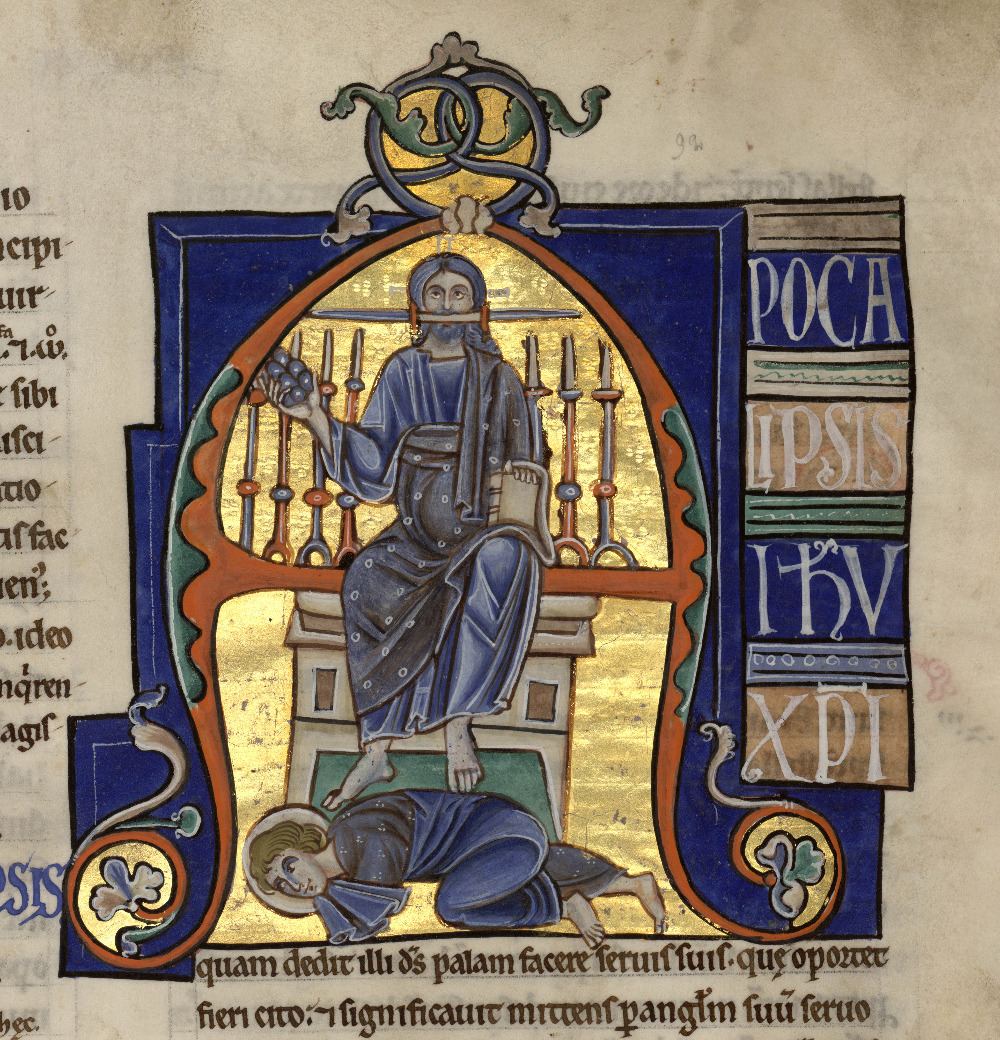 io
cipi-
uir-
⁊.ω.
sibi
usci
atio
fac
uen;
ideo
nq̄ren-
agis
PSIS
hęc.
92
A
POCA
LIPSIS
IħV
XPI
quam dedit illi dˢ̄ palam facere seruis suis. quę oportet
fieri cito: ⁊ significauit mittens ꝑ angl̄m suū seruo